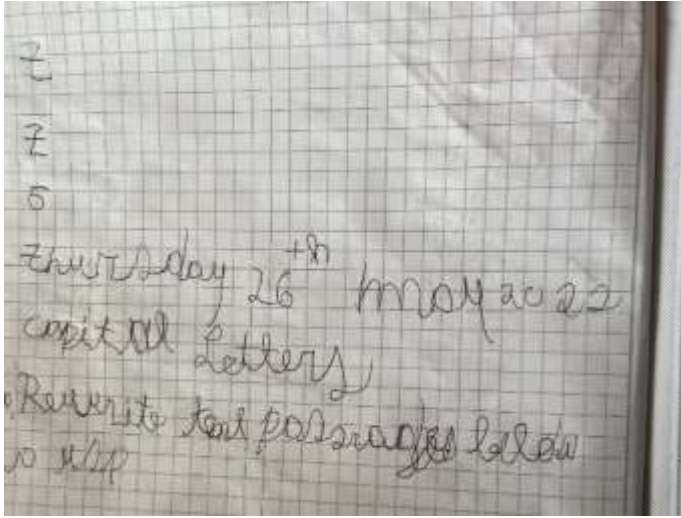 Z
Z
5
Thursday 26th May 2022
capital Letters
Rewrite passages below